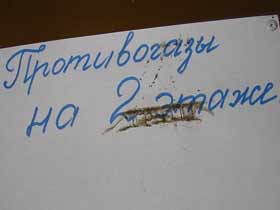 Противогазы
на 2 этаже